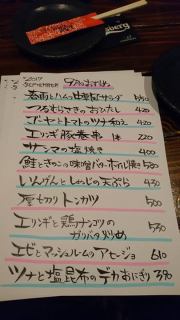 sberg
2017
SEPTEMBER
9月のおすすめ
春雨とハムの中華風サラダ 550
つるむらさきのおひたし 420
ゴーヤとトマトのツナ和え 420
エリンギ豚巻串 1本 220
サンマの塩焼き 400
鮭ときのこの味噌バターホイル焼き 580
いんげんとしらすの天ぷら 430
厚切りトンカツ 500
エリンギと鶏ナンコツの
ガリバタ炒め 530
エビとマッシュルームのアヒージョ 610
ツナと塩昆布のデカおにぎり 390